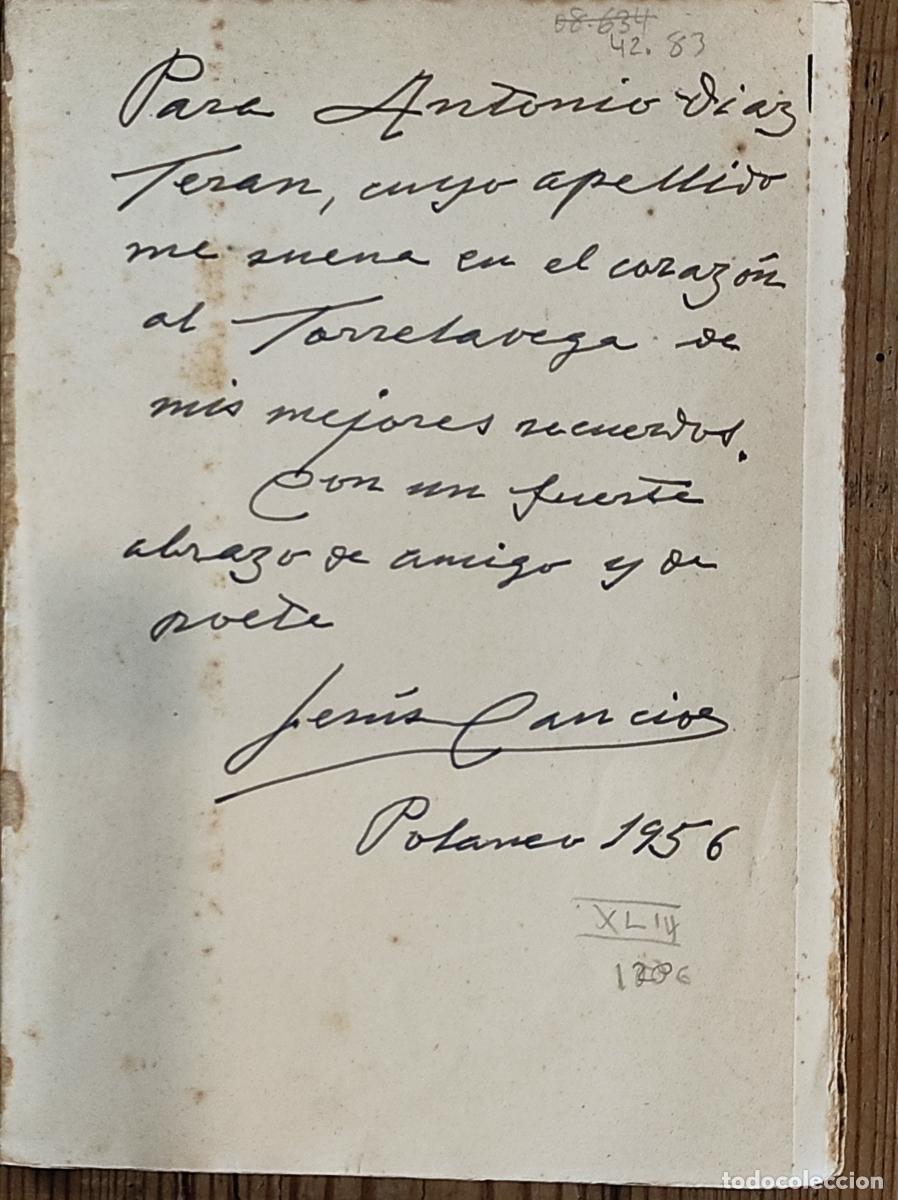 08.634
42.83
Para Antonio Diaz
Teran, cuyo apellido
me suena en el corazón
al Torrelavega de
mis mejores recuerdos.
Con un fuerte
abrazo de amigo y de
poeta
Jesús Cancio
Polanco 1956
todocoleccion